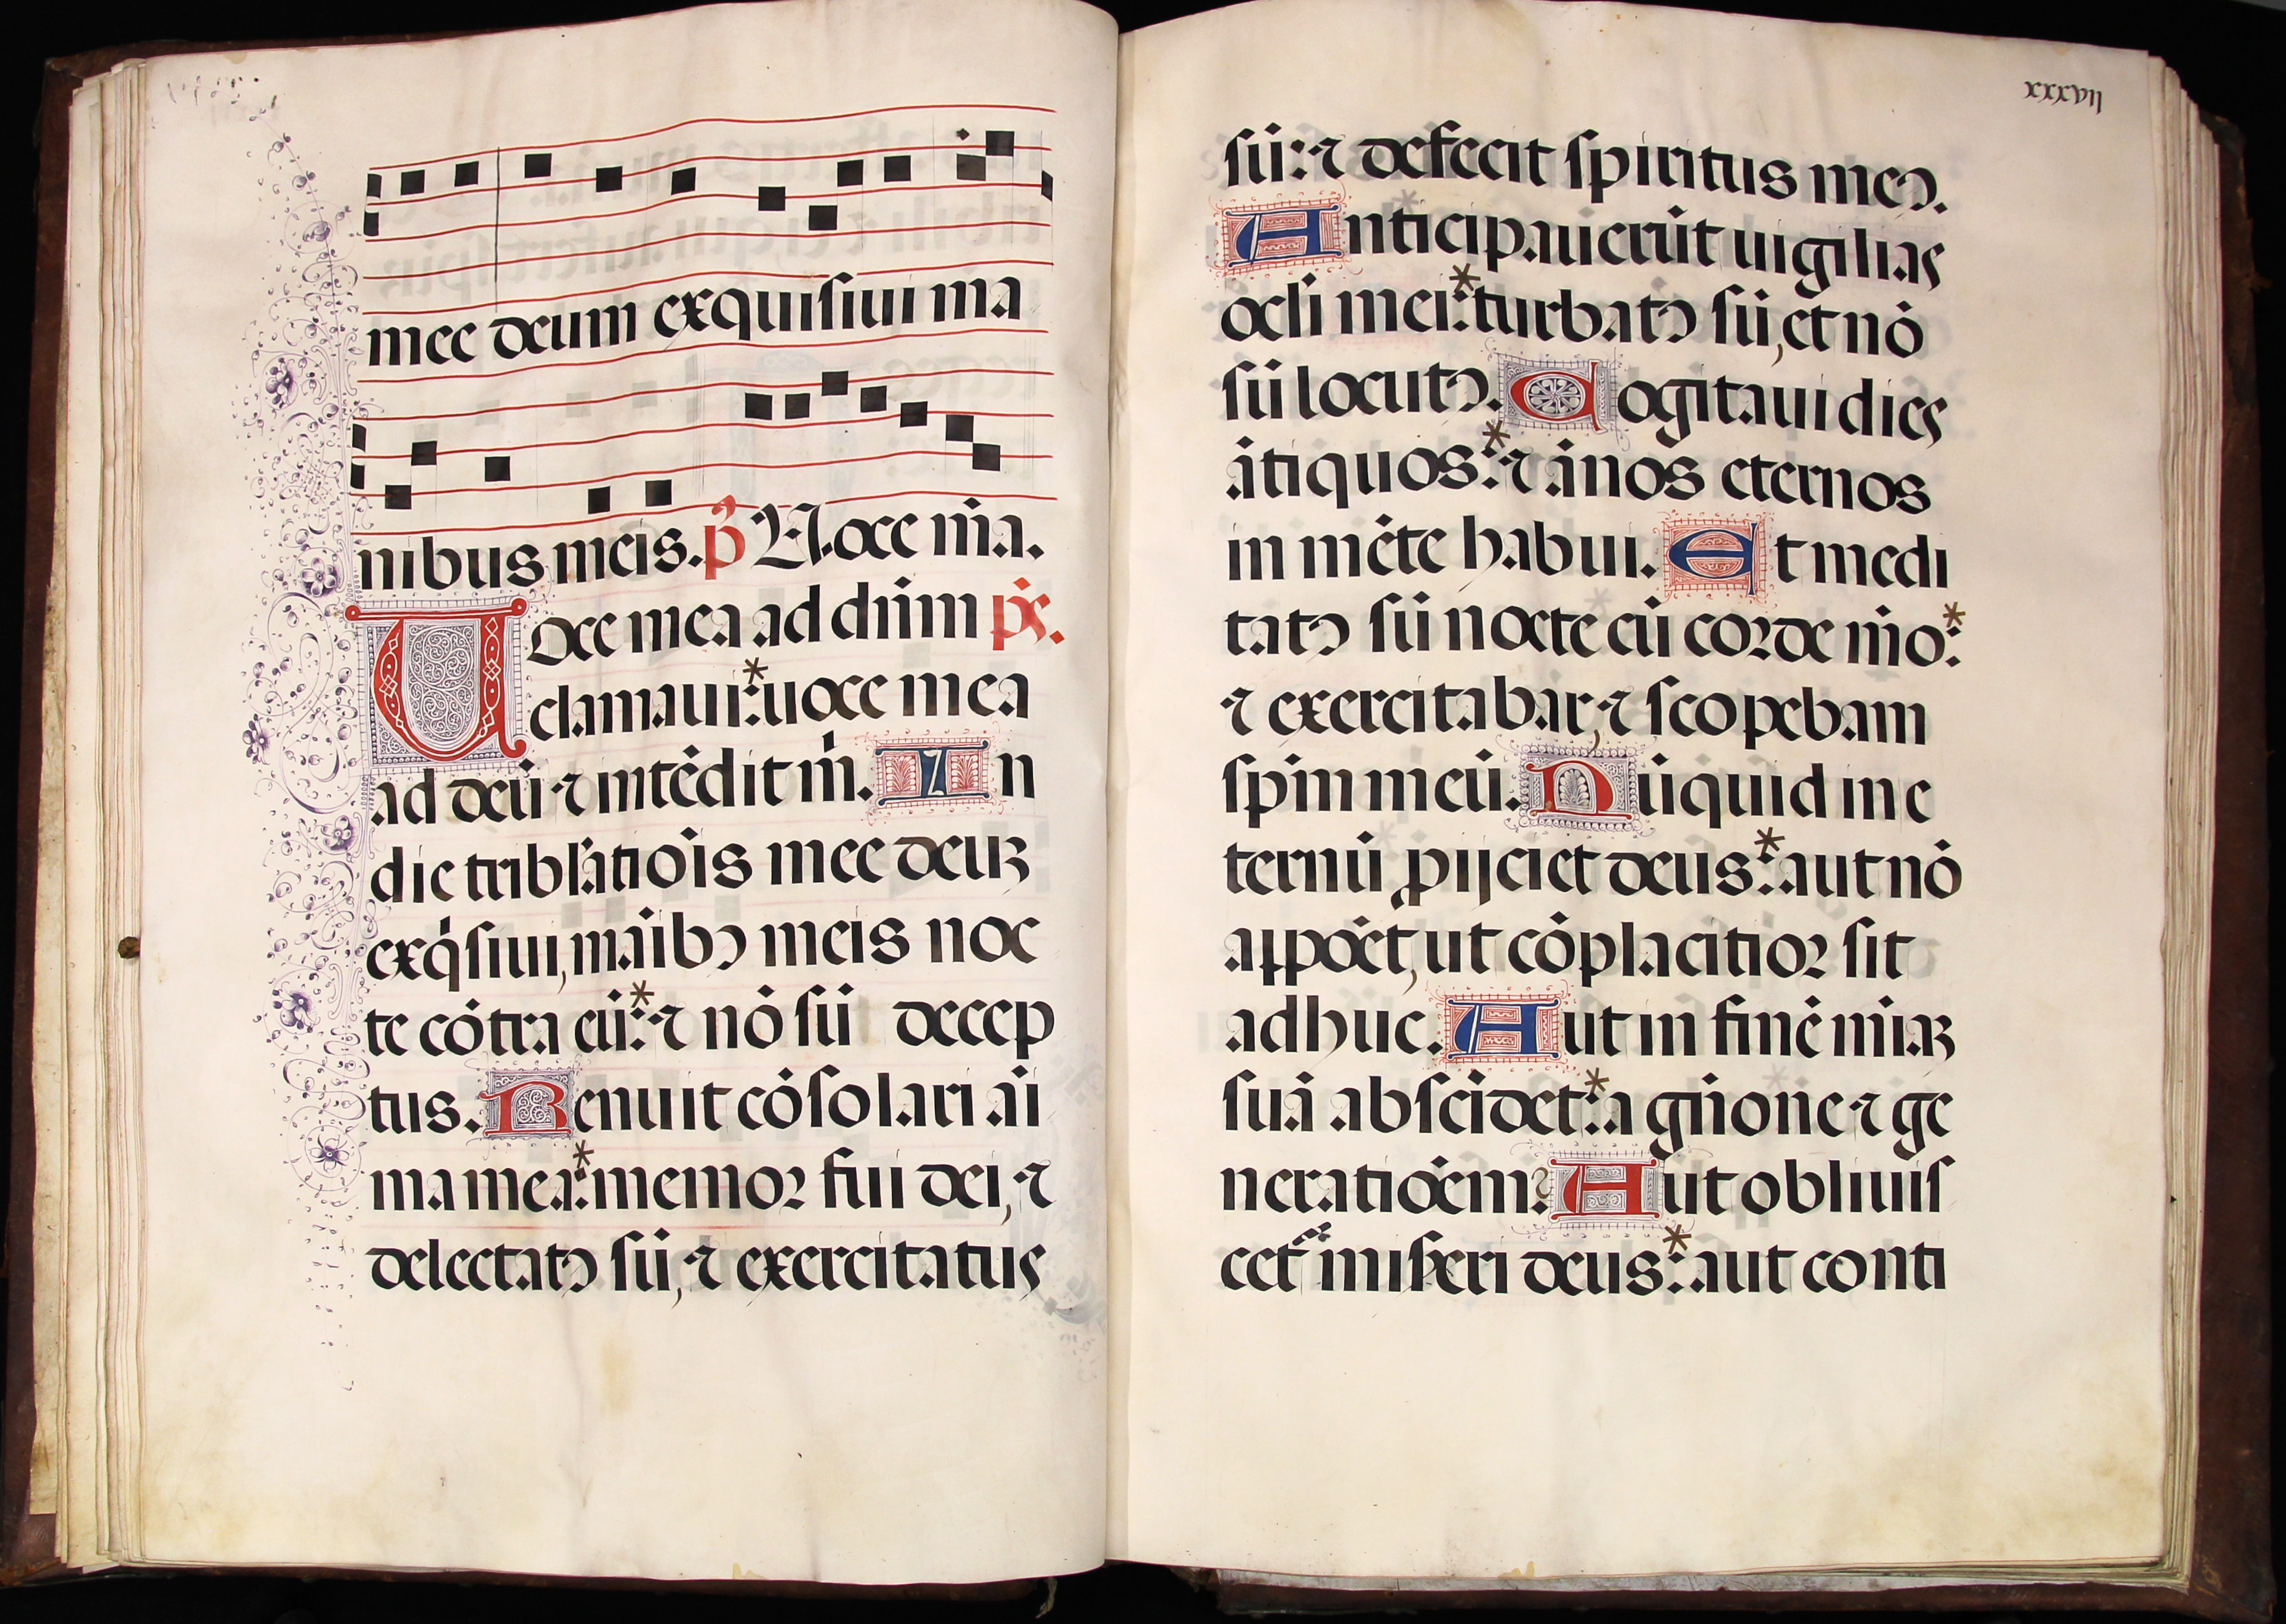 mee deum exquisiui ma
nibus meis. p̄s Uoce m̄a.
Uoce mea ad dn̄m ps.
clamaui:* uoce mea
ad deū ⁊ intēdit m̄. In
die tribl̄atiōis mee deuꝫ
exq̇siui, māibꝰ meis noc
te cōtra eū:* ⁊ nō sū decep
tus. Renuit cōsolari ai
ma mea:* memoꝛ fui dei, ⁊
delectatꝰ sū, ⁊ exercitatus
xxxvii
sū: ⁊ defecit spiritus meꝰ.
Anticipauerūt uigilias
ocl̄i mei:* turbatꝰ sū, et nō
sū locutꝰ. Cogitaui dies
ātiquos:* ⁊ ānos eternos
in mēte habui. Et medi
tatꝰ sū nocte cū coꝛde m̄o:*
⁊ exercitabar, ⁊ scopebam
sp̄m meū. Nūquid in e
ternū ꝓijciet deus:* aut nō
appōet, ut cōplacitioꝛ sit
adhuc. Aut in finē m̄iaꝫ
suā abscidet:* a gn̄one ⁊ ge
neratiōem? Aut obliuis
cet᷑ miseri deus:* aut conti